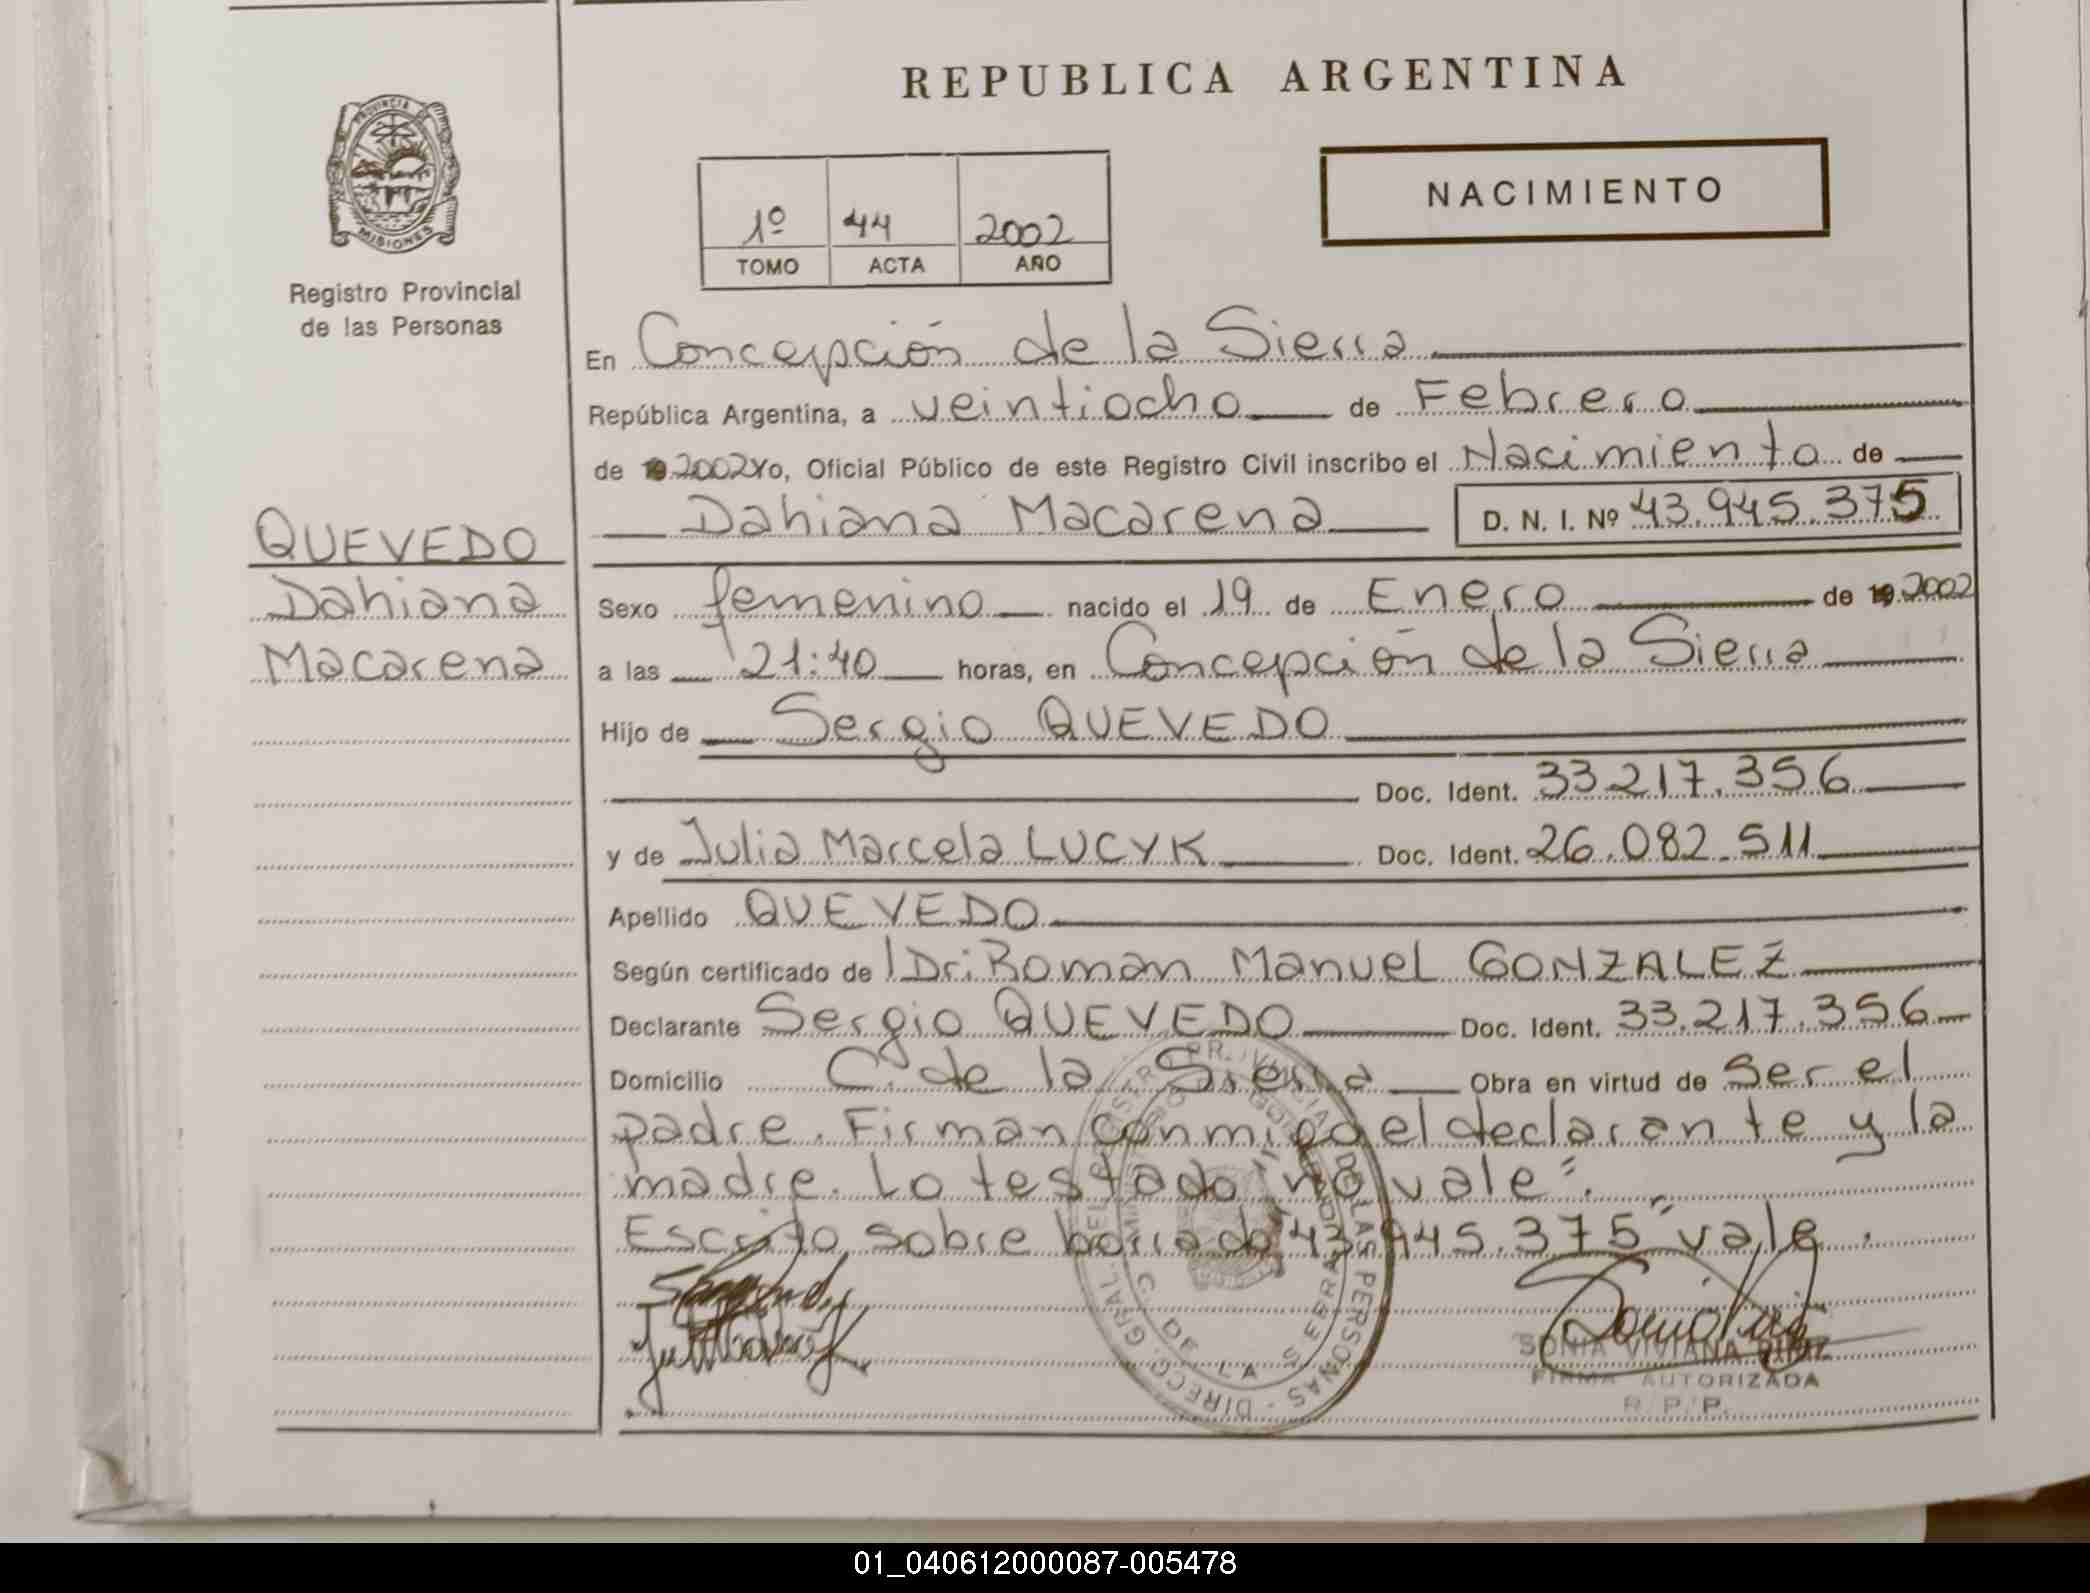 REPUBLICA ARGENTINA
PROVINCIA DE
MISIONES
Registro Provincial
de las Personas
1º 44 2002
TOMO ACTA AÑO
NACIMIENTO
En Concepción de la Sierra
República Argentina, a veintiocho de Febrero
de 19 2002 Yo, Oficial Público de este Registro Civil inscribo el Nacimiento de
Dahiana Macarena D. N. I. Nº 43.945.375
QUEVEDO
Dahiana
Macarena
Sexo femenino nacido el 19 de Enero de 19 2002
a las 21:40 horas, en Concepción de la Sierra
Hijo de Sergio QUEVEDO
Doc. Ident. 33.217.356
y de Julia Marcela LUCYK Doc. Ident. 26.082.511
Apellido QUEVEDO
Según certificado de Dr. Roman Manuel GONZALEZ
Declarante Sergio QUEVEDO Doc. Ident. 33.217.356
Domicilio C. de la Sierra Obra en virtud de Ser el
padre. Firman conmigo el declarante y la
madre. Lo testado no vale".
Escrito sobre borrado "43.945.375" vale.
C. DE LA SIERRA
SONIA VIVIANA
FIRMA AUTORIZADA
R. P. P.
01_040612000087-005478